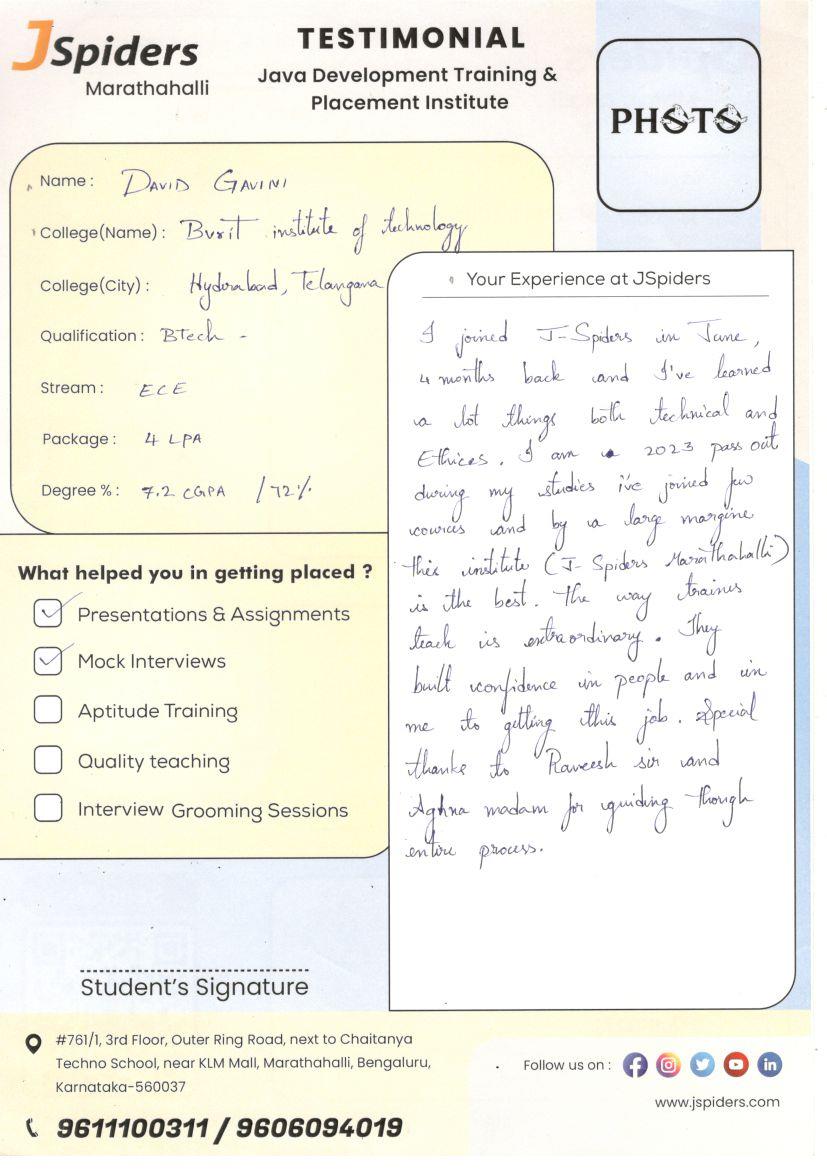 JSpiders
Marathahalli
TESTIMONIAL
Java Development Training &
Placement Institute
PHOTO
Name : DAVID GAVINI
College(Name) : Bvrit institute of technology
College(City) : Hyderabad, Telangana
Qualification : BTech -
Stream : ECE
Package : 4 LPA
Degree % : 7.2 CGPA / 72%
What helped you in getting placed ?
Presentations & Assignments
Mock Interviews
Aptitude Training
Quality teaching
Interview Grooming Sessions
Your Experience at JSpiders
I joined J-Spiders in June,
4 months back and I've learned
a lot things both technical and
Ethices. I am a 2023 pass out
during my studies i've joined few
cources and by a large margine
this institute (J-Spiders Marathahalli)
is the best. The way traines
teach is extraordinary. They
built confidence in people and in
me to getting this job. Special
thanks to Raveesh sir and
Aghna madam for guiding though
entire process.
Student's Signature
#761/1, 3rd Floor, Outer Ring Road, next to Chaitanya
Techno School, near KLM Mall, Marathahalli, Bengaluru,
Karnataka-560037
9611100311 / 9606094019
Follow us on :
www.jspiders.com